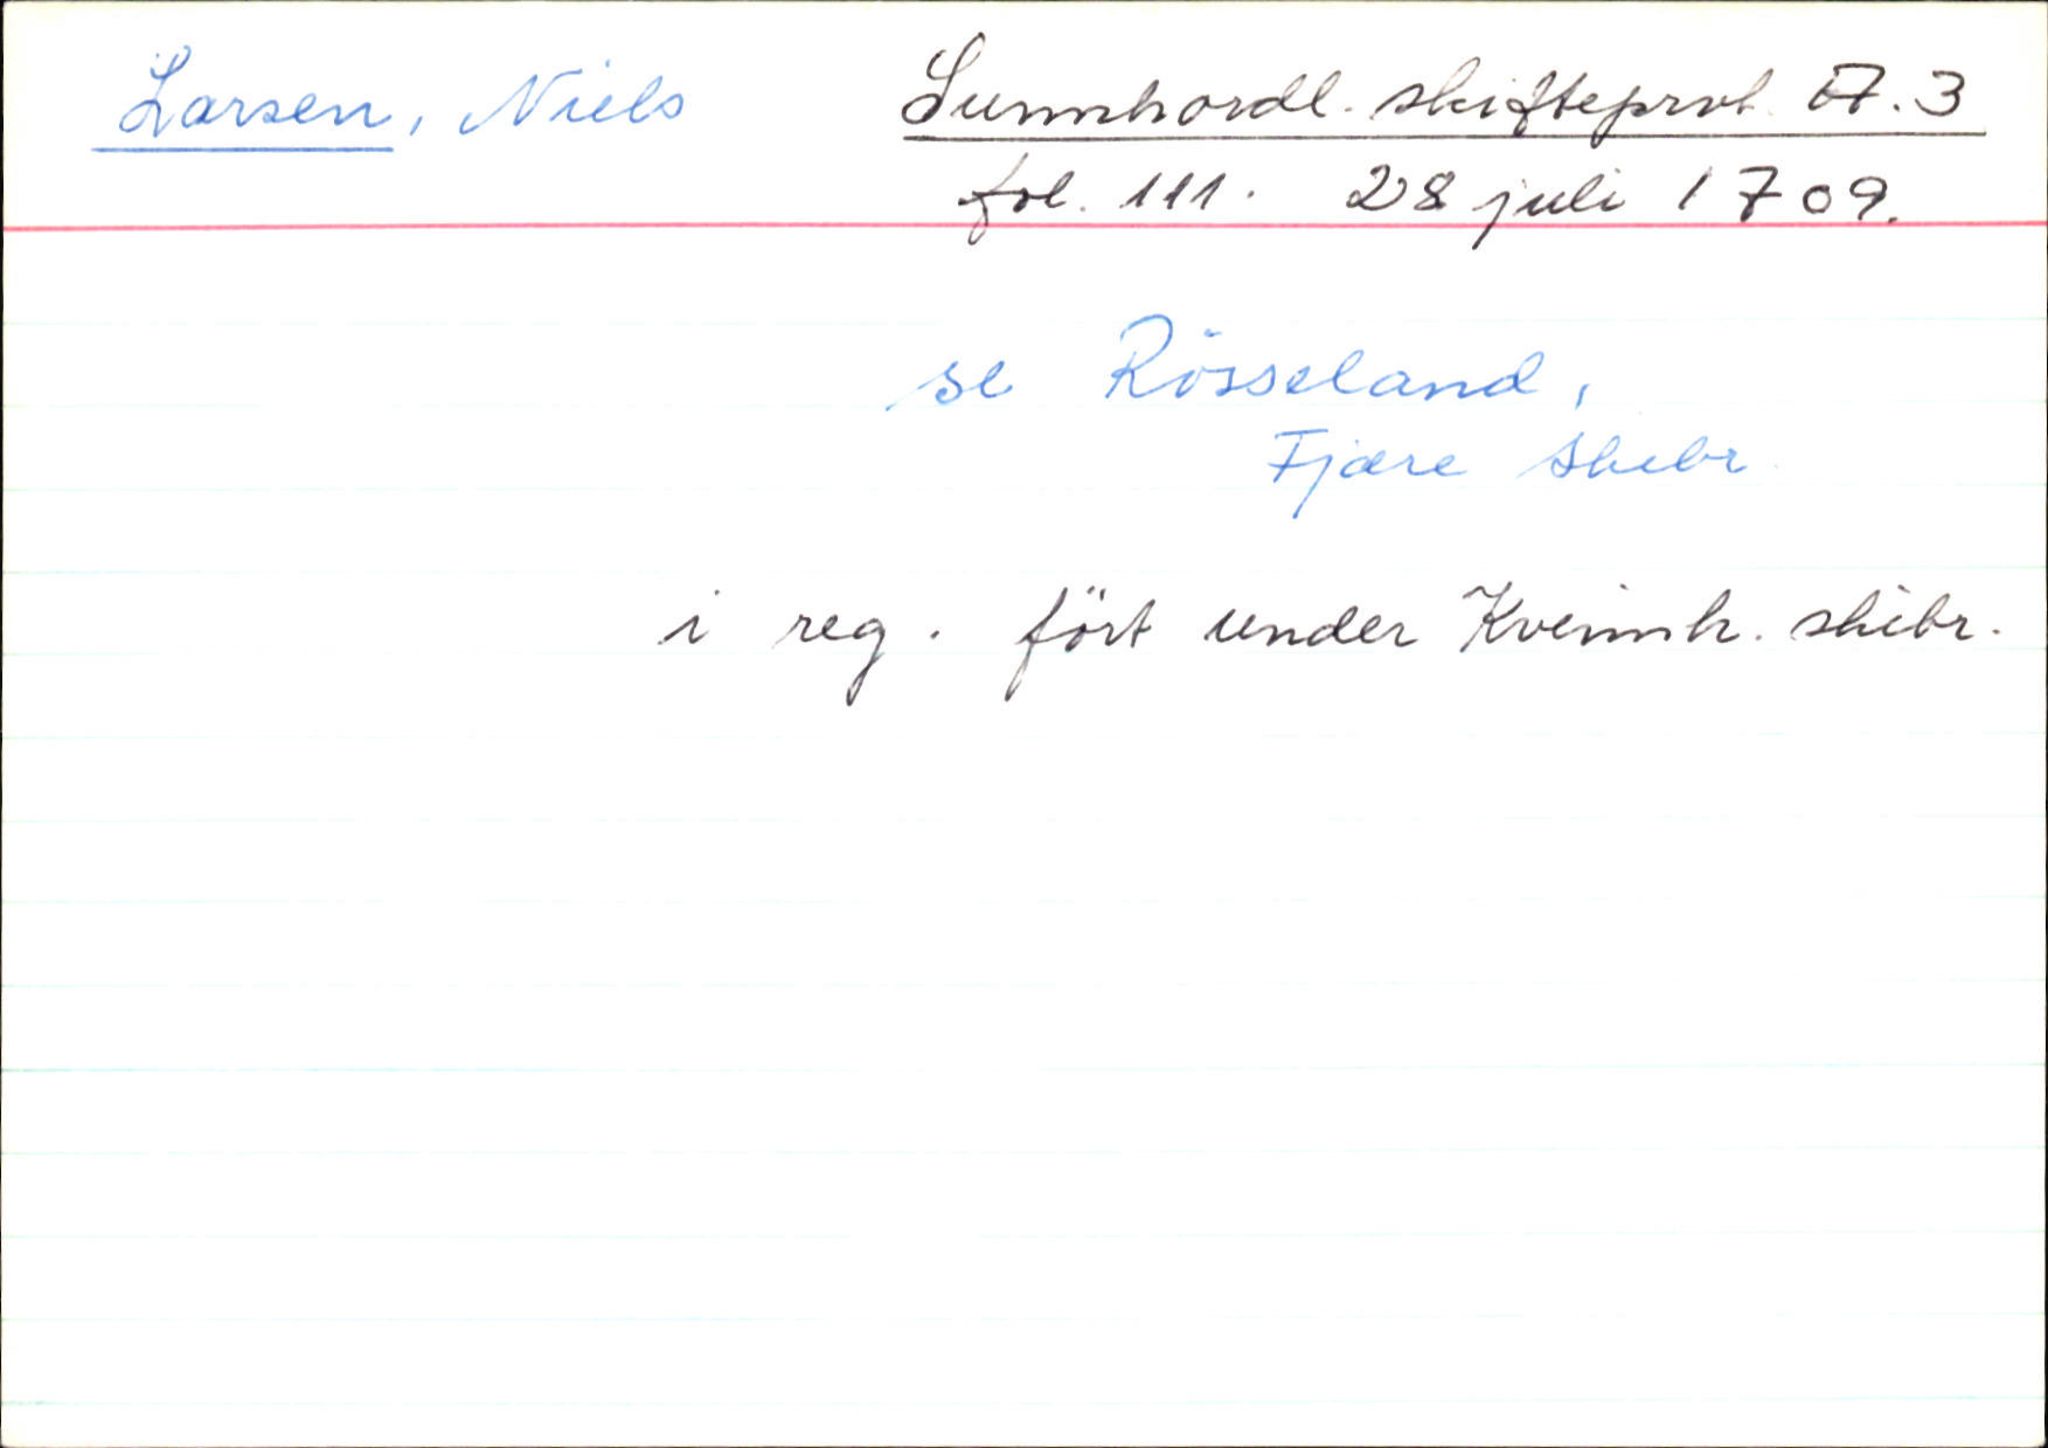 Larsen, Niels
Sunnhordl. skifteprot. A. 3
fol. 111. 28 juli 1709.
se Rösseland,
Fjære skibr
i reg. fört under Kvinnh. skibr.